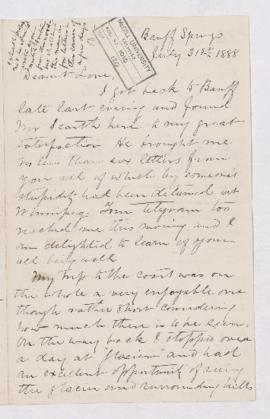 McGILL UNIVERSITY
Banff Springs
July 31st 1888
Dearest Love,
I got back to Banff
late last evening and found
Mr here to my great
satisfaction He brought me
no less than six letters from
you all of which by someone's
stupidity had been detained at
Winnipeg. Your telegram too
reached me this morning and I
am delighted to learn of your
all being well
My trip to the coast was on
the whole a very enjoyable one
though rather short considering
how much there is to be seen.
On the way back I stopped over
a day at "Glacier" and had
an excellent opportunity of seeing
the glacier and surrounding hills